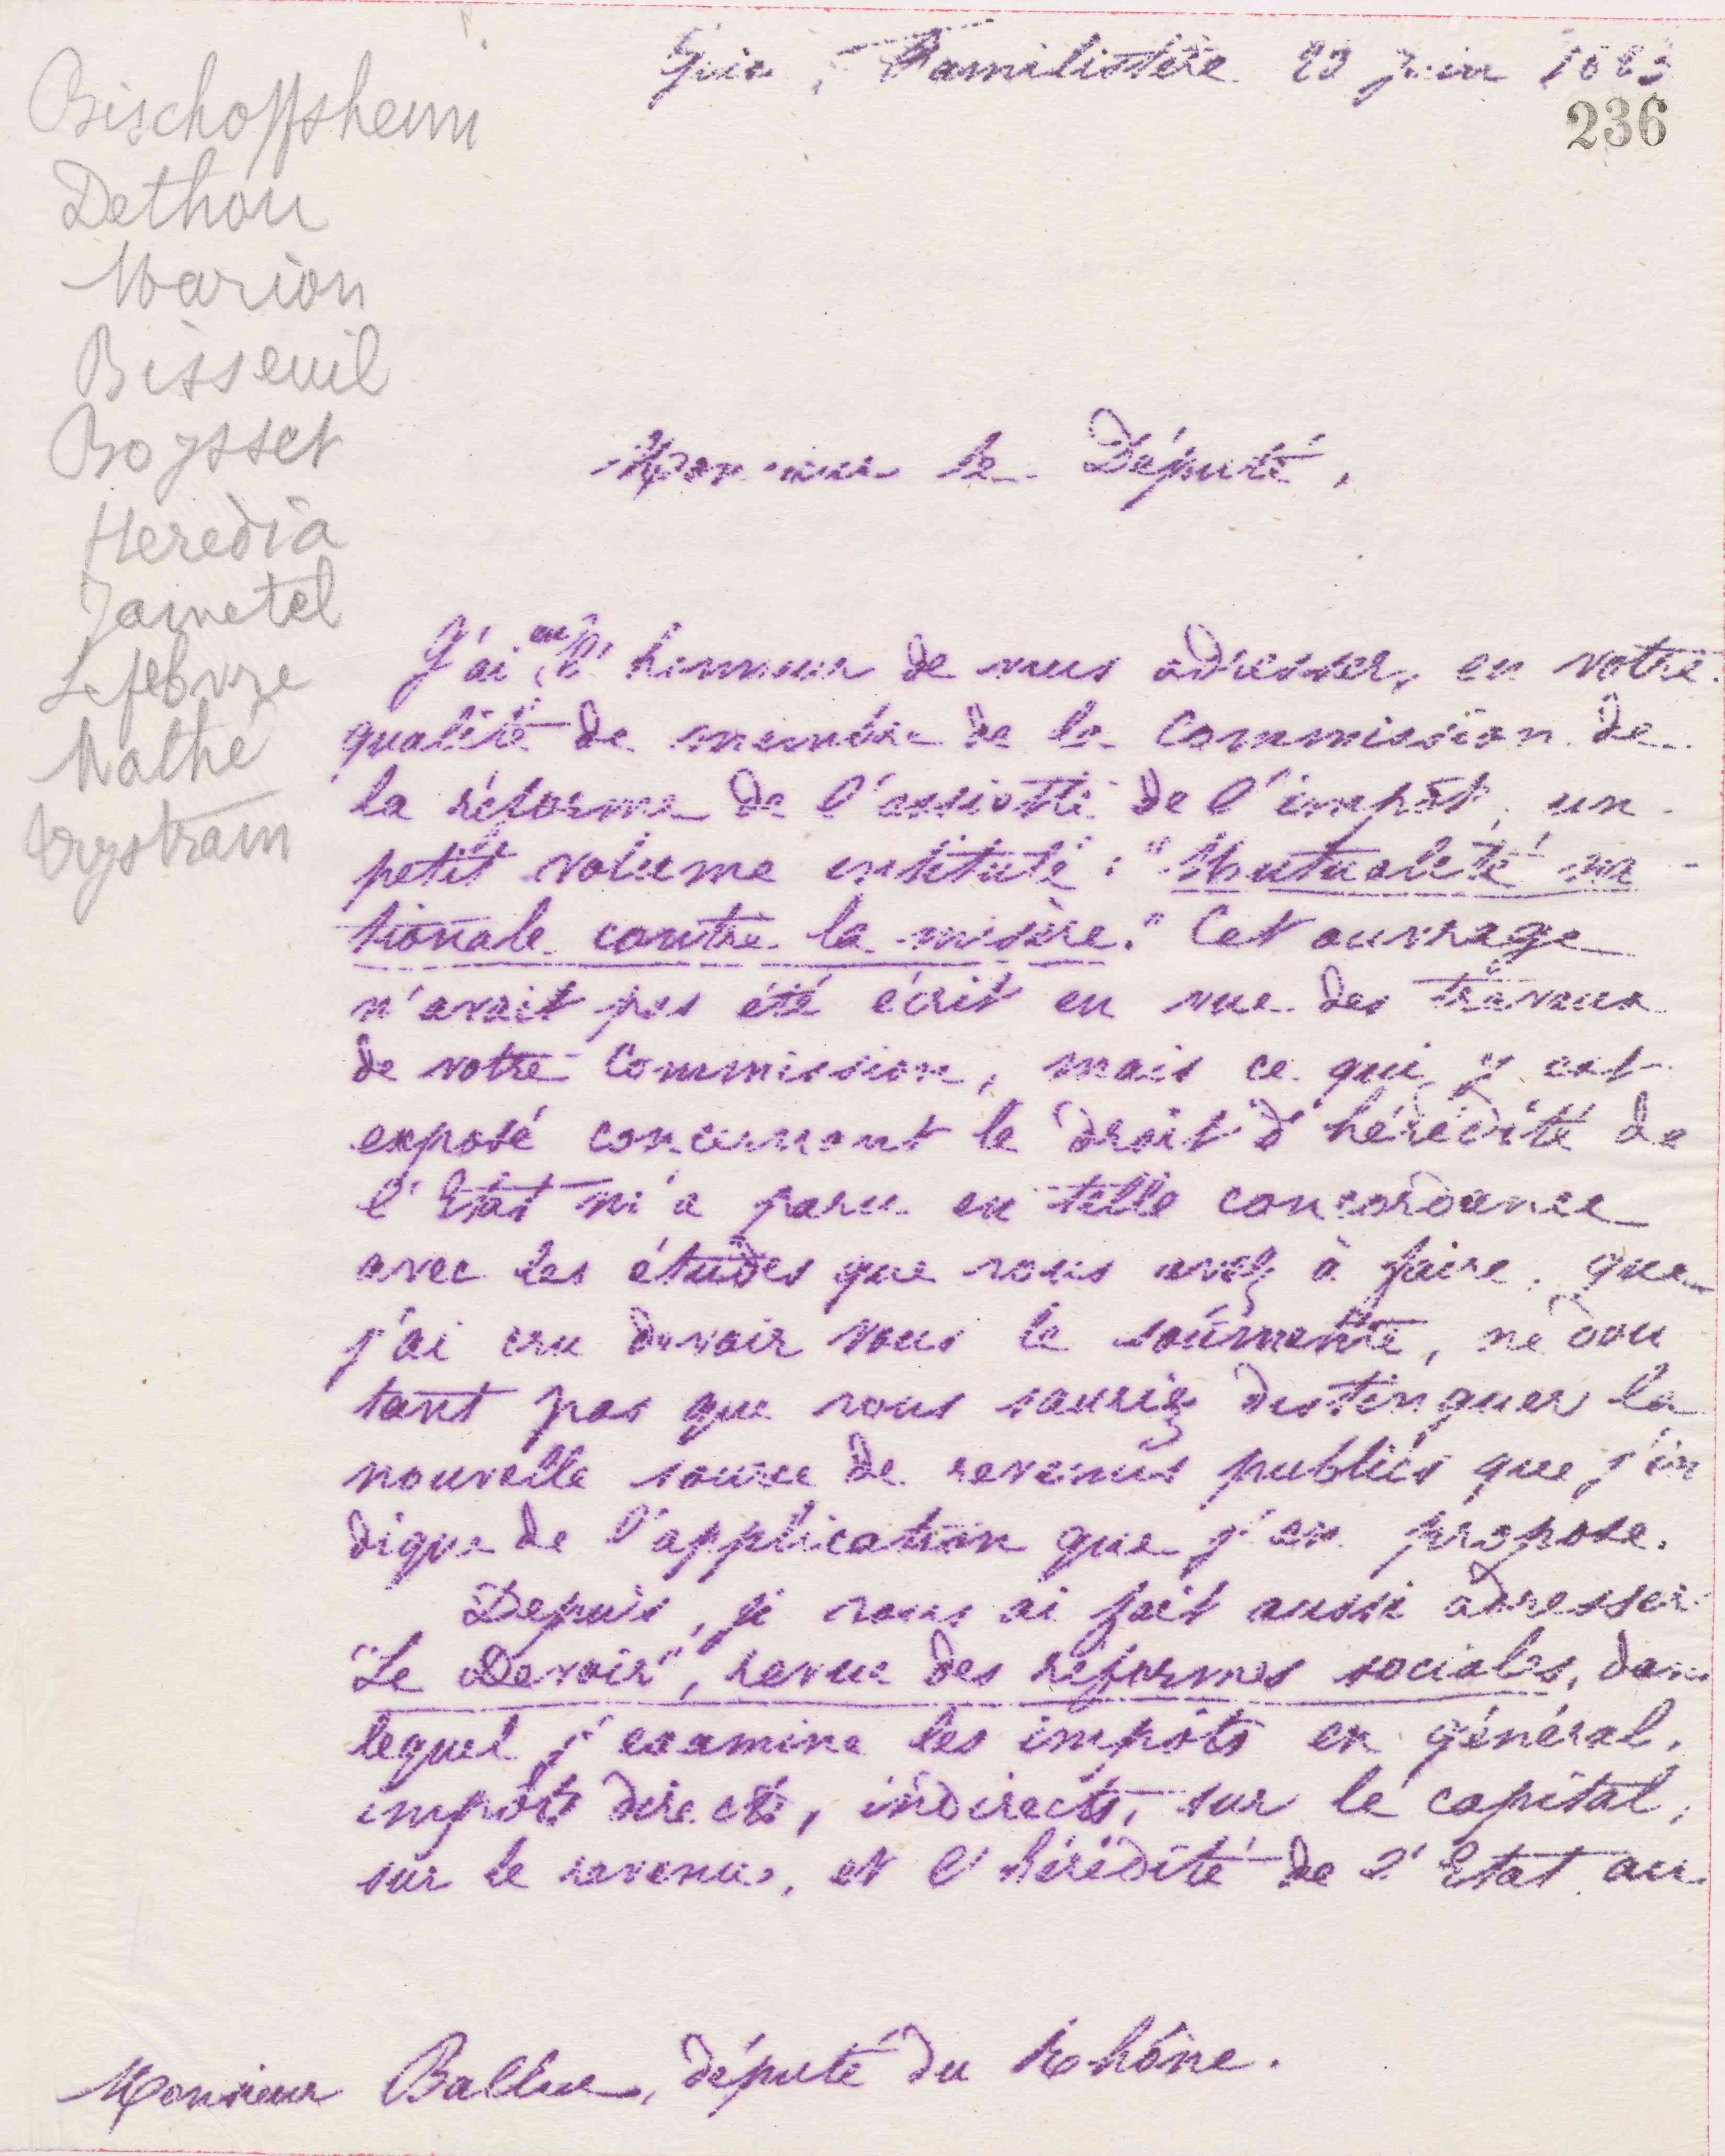 Guise, Familistère 23 juin 1883
236
Bischoffsheim
Dethou
Marion
Bisseuil
Boysset
Heredia
Jametel
Lefebvre
Mathé
Trystram
Monsieur le Député,
J'ai eu l'honneur de vous adresser, en votre
qualité de membre de la Commission de
la réforme de l'assiette de l'impôt, un
petit volume intitulé : "Mutualité na
tionale contre la misère." Cet ouvrage
n'avait pas été écrit en vue des travaux
de votre Commission, mais ce qui y est
exposé concernant le droit d'hérédité de
l'Etat m'a paru en telle concordance
avec les études que vous avez à faire, que
j'ai cru devoir vous le soumettre, ne dou
tant pas que vous sauriez distinguer la
nouvelle source de revenus publics que j'in
dique de l'application que j'en propose.
Depuis, je vous ai fait aussi adresser
"Le Devoir", revue des réformes sociales, dans
lequel j'examine les impôts en général,
impôts directs, indirects, sur le capital,
sur le revenu, et l'hérédité de l'Etat au
Monsieur Ballue, député du Rhône.